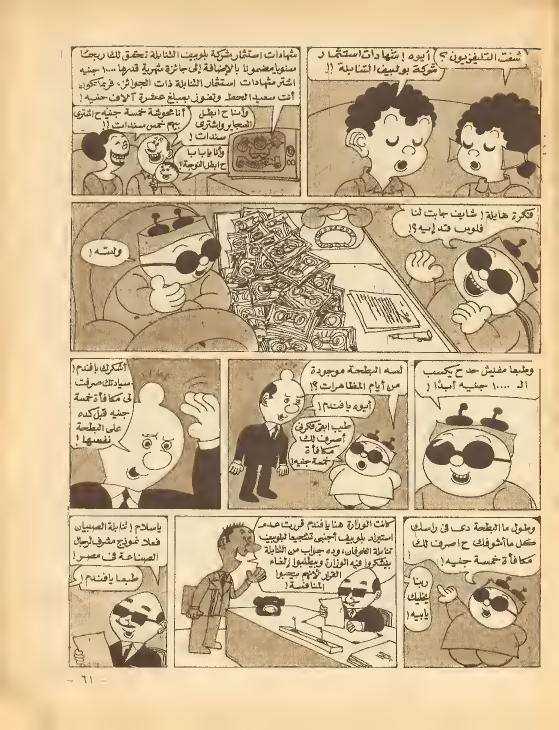 شفت التليفزيون؟
أيوه! شهادات استثمار
شركة بولبيف التنابلة!!
شهادات استثمار شركة بلوبيف التنابلة تحقق لك ربحًا
سنويا مضمونا بالإضافة إلى جائزة شهرية قدرها ١٠٠٠٠ جنيه
اشتر شهادات استثمار التنابلة ذات الجوائز. فربما تكون
أنت سعيد الحظ وتفوز بمبلغ عشرة آلاف جنيه!
أنا محوشة خمسة جنيه ح اشتري
بيهم خمس سندات!!
وأنا ح ابطل
السجاير واشتري
سندات!
وأنا يا بابا
ح ابطل
فكرة هايلة! شايف جابت لنا
فلوس قد إيه؟!
ولسه!
وطبعا مفيش حد ح يكسب
الـ ١٠٠٠٠ جنيه أبدًا!
لسه البطحة موجودة
من أيام المظاهرات؟!
أيوه يا فندم!
طيب ابقى فكرني
أصرف لك
مكافأة
خمسة جنيه!
أشكرك يا فندم!
سيادتك صرفت
لي مكافأة خمسة
جنيه قبل كده
على البطحة
نفسها!
وطول ما البطحة دي في راسك
كل ما أشوفك ح اصرف لك
مكافأة خمسة جنيه!
ربنا
يخليك
يا بيه!
كانت الوزارة هنا يا فندم قررت عدم
استيراد بلوبيف أجنبي تشجيعا لبلوبيف
تنابلة الخرفان، وده جواب من التنابلة
بيشكروا فيه الوزارة وبيطلبوا إلغاء
القرار لأنهم بيحبوا
المنافسة!
يا سلام! تنابلة الصبيان
فعلا نموذج مشرف لرجال
الصناعة في مصر!
طبعا يا فندم!
- ٦١ -